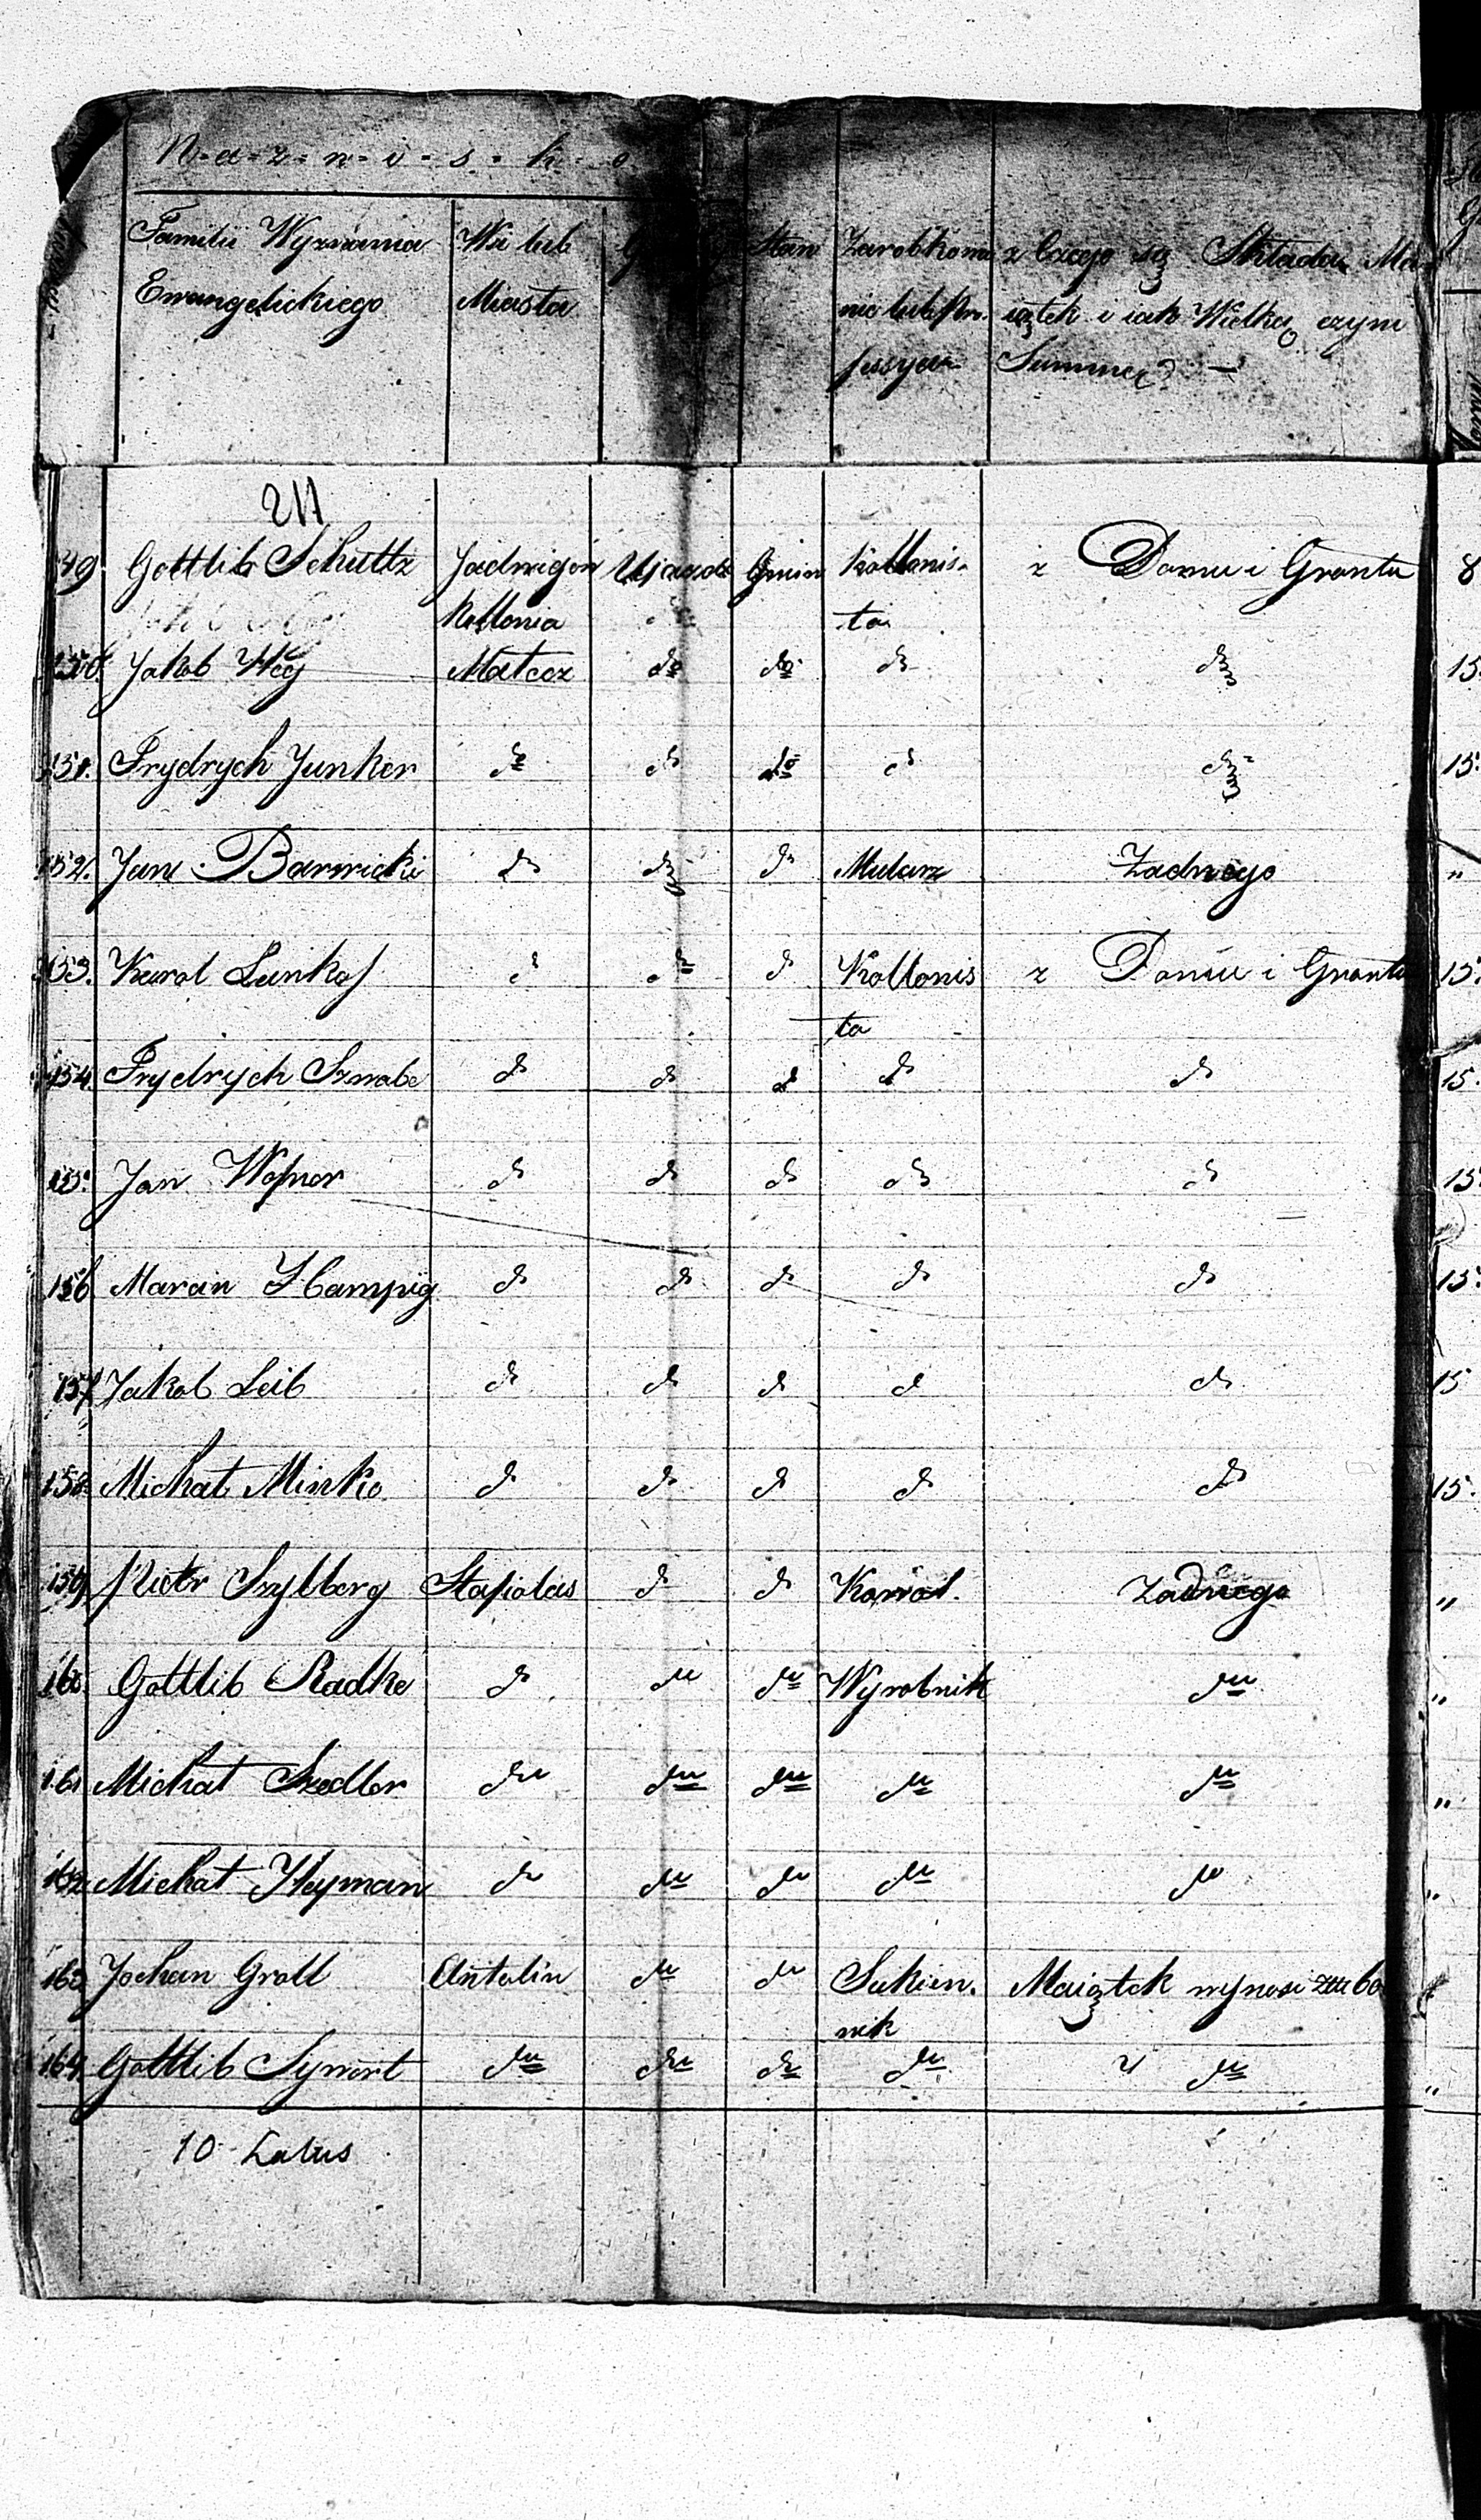 N-a-z-w-i-s-k-o
Familii Wyznania Wsi lub Stan Zarobkowa z Czego się Składa Ma
Ewangelickiego Miasta nie lub Pro- iątek i iak Wielką czyni
fessyia Summę? —
211
149 Gottlib Schultz Jadwigow Ujazd Gmin Kollonis- z Domu i Gruntu 8
Kollonia ta
150. Jakob Hey Małecz do do do do 15
151. Frydrych Junker do do do do do 15.
152. Jan Barwicki do do do Mularz Żadnego "
153. Karol Lunka do do do Kollonis z Domu i Gruntu 15
ta
154. Frydrych Szwabe do do do do do 15.
155. Jan Wossner do do do do do 15
156 Marcin Hampig do do do do do 15.
157 Jakob Leib do do do do do 15
158. Michał Minko do do do do do 15.
159 Piotr Szylberg Stasiolas do do Kowal. Żadnego "
160. Gottlib Radke do do do Wyrobnik do "
161 Michał Szedler do do do do do "
162 Michał Heyman do do do do do "
163 Johan Groll Antolin do do Sukien- Maiątek wynosi 60
nik
164. Gottlib Sywert do do do do do "
10 Latus